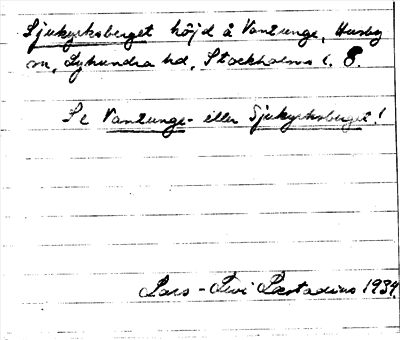 Sjukyrksberget höjd å Vanlunge, Husby
sn, Lyhundra hd, Stockholms l. 8.
Se Vanlunge- eller Sjukyrksberget!
Lars-Levi Læstadius 1934.